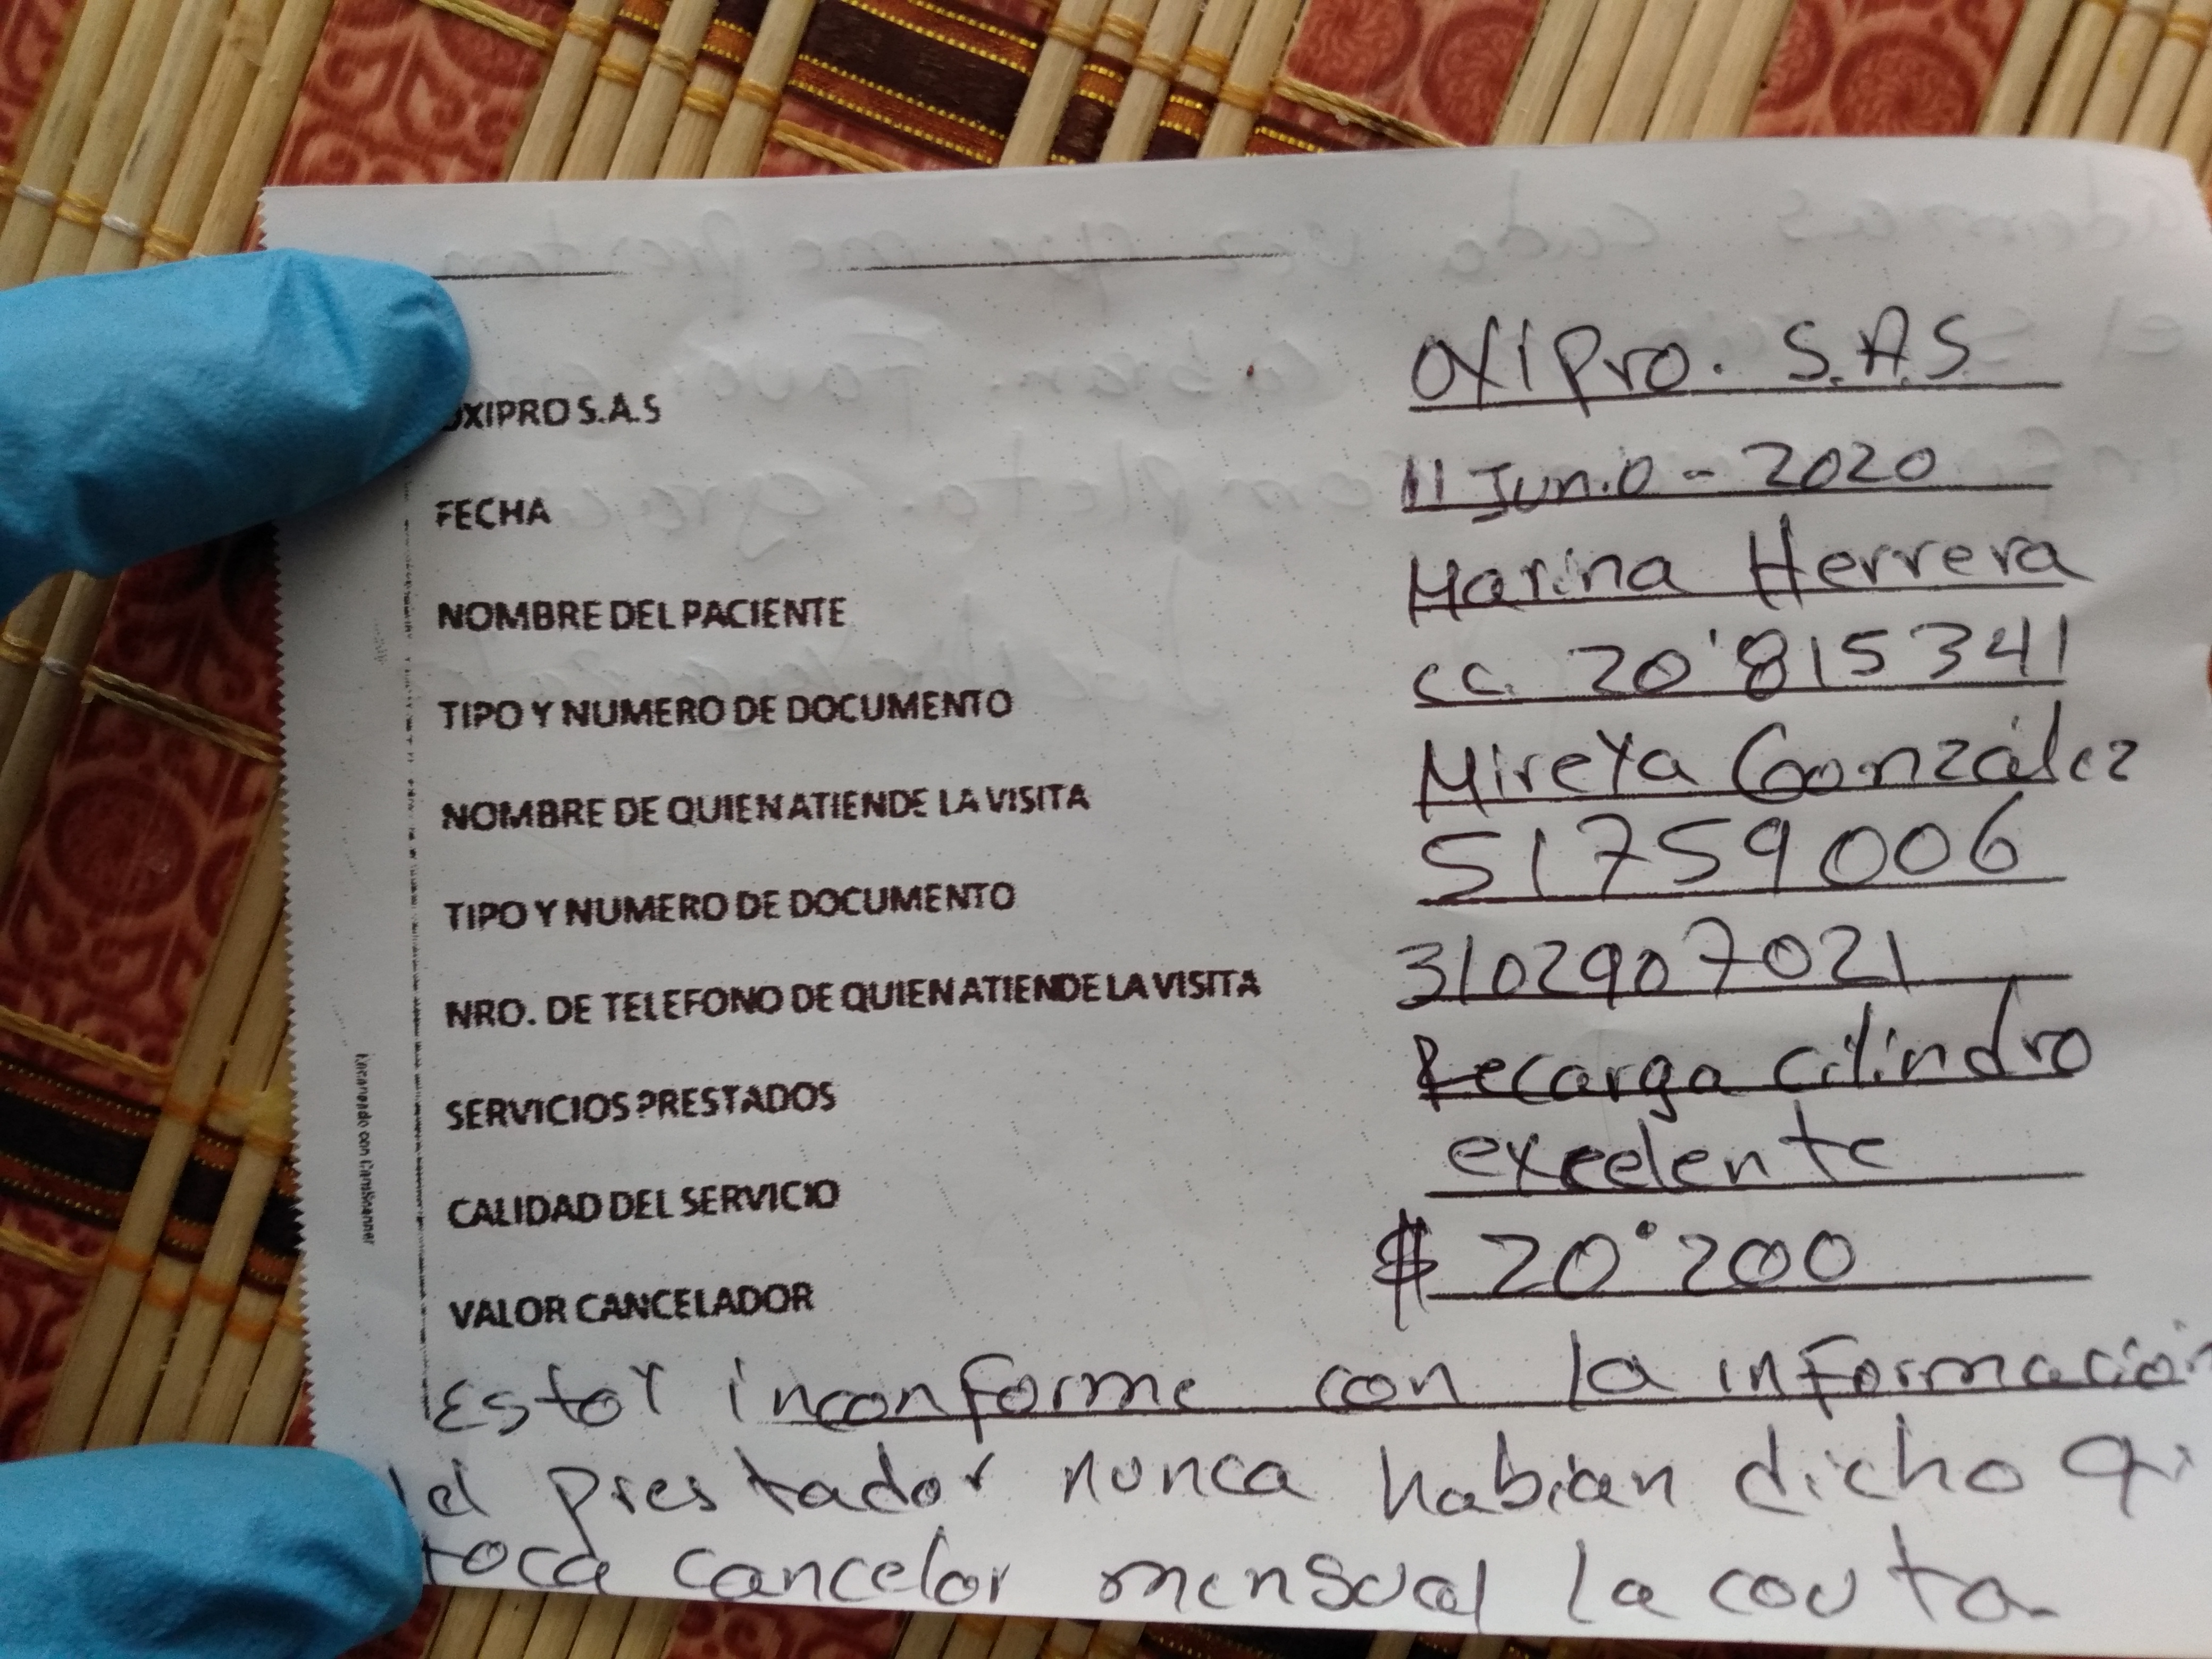 OXIPRO S.A.S OXIPro. S.A.S
FECHA 11 Junio - 2020
NOMBRE DEL PACIENTE Marina Herrera
TIPO Y NUMERO DE DOCUMENTO cc. 20'815341
NOMBRE DE QUIEN ATIENDE LA VISITA Mireya González
TIPO Y NUMERO DE DOCUMENTO 51759006
NRO. DE TELEFONO DE QUIEN ATIENDE LA VISITA 3102907021
SERVICIOS PRESTADOS Recarga cilindro
CALIDAD DEL SERVICIO excelente
VALOR CANCELADOR $ 20.200
Estoy inconforme con la información
del prestador nunca habian dicho
toca cancelar mensual la couta
Escaneado con CamScanner